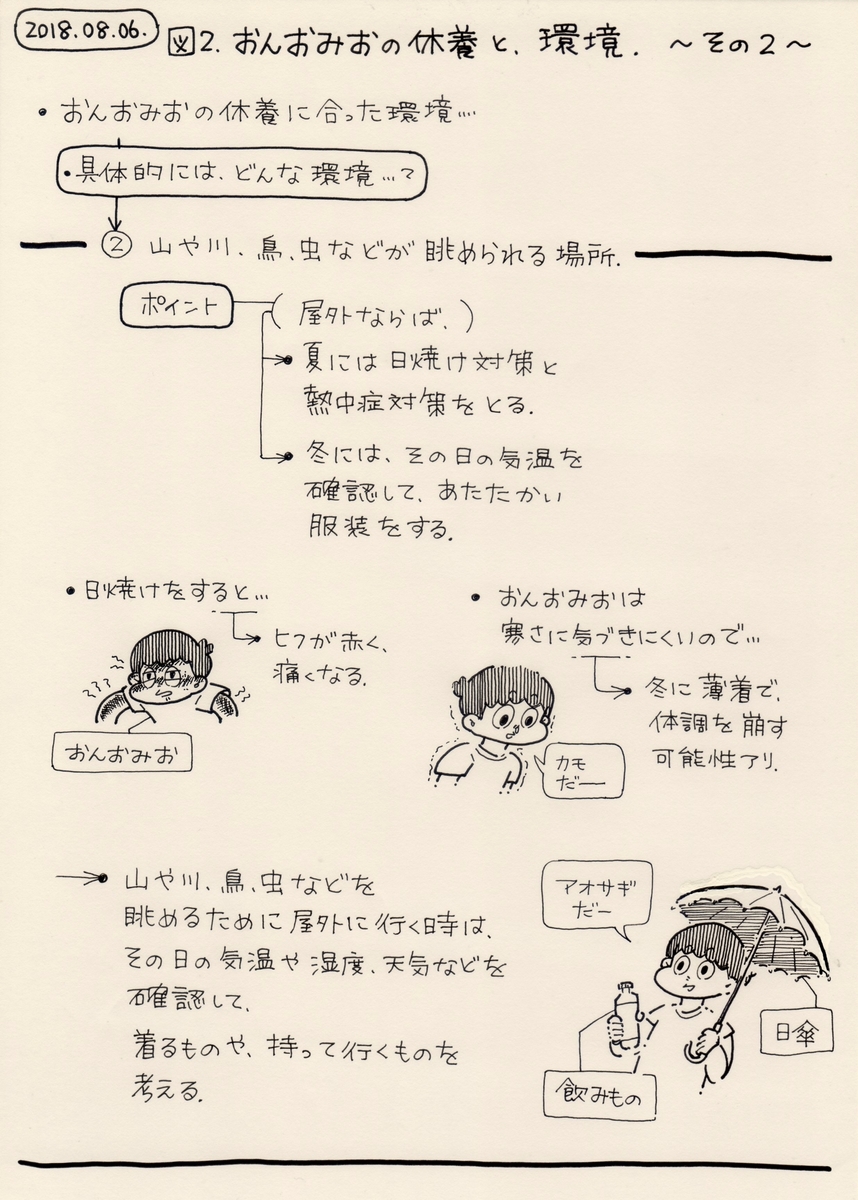 2018.08.06.
図2. おんおみおの休養と、環境. ～その2～
・おんおみおの休養に合った環境…
・具体的には、どんな環境…?
② 山や川、鳥、虫などが眺められる場所.
ポイント
(屋外ならば、)
夏には日焼け対策と
熱中症対策をとる.
冬には、その日の気温を
確認して、あたたかい
服装をする.
・日焼けをすると…
ヒフが赤く、
痛くなる.
おんおみお
・おんおみおは
寒さに気づきにくいので…
冬に薄着で、
体調を崩す
可能性アリ.
カモ
だー
山や川、鳥、虫などを
眺めるために屋外に行く時は、
その日の気温や湿度、天気などを
確認して、
着るものや、持って行くものを
考える.
アオサギ
だー
日傘
飲みもの